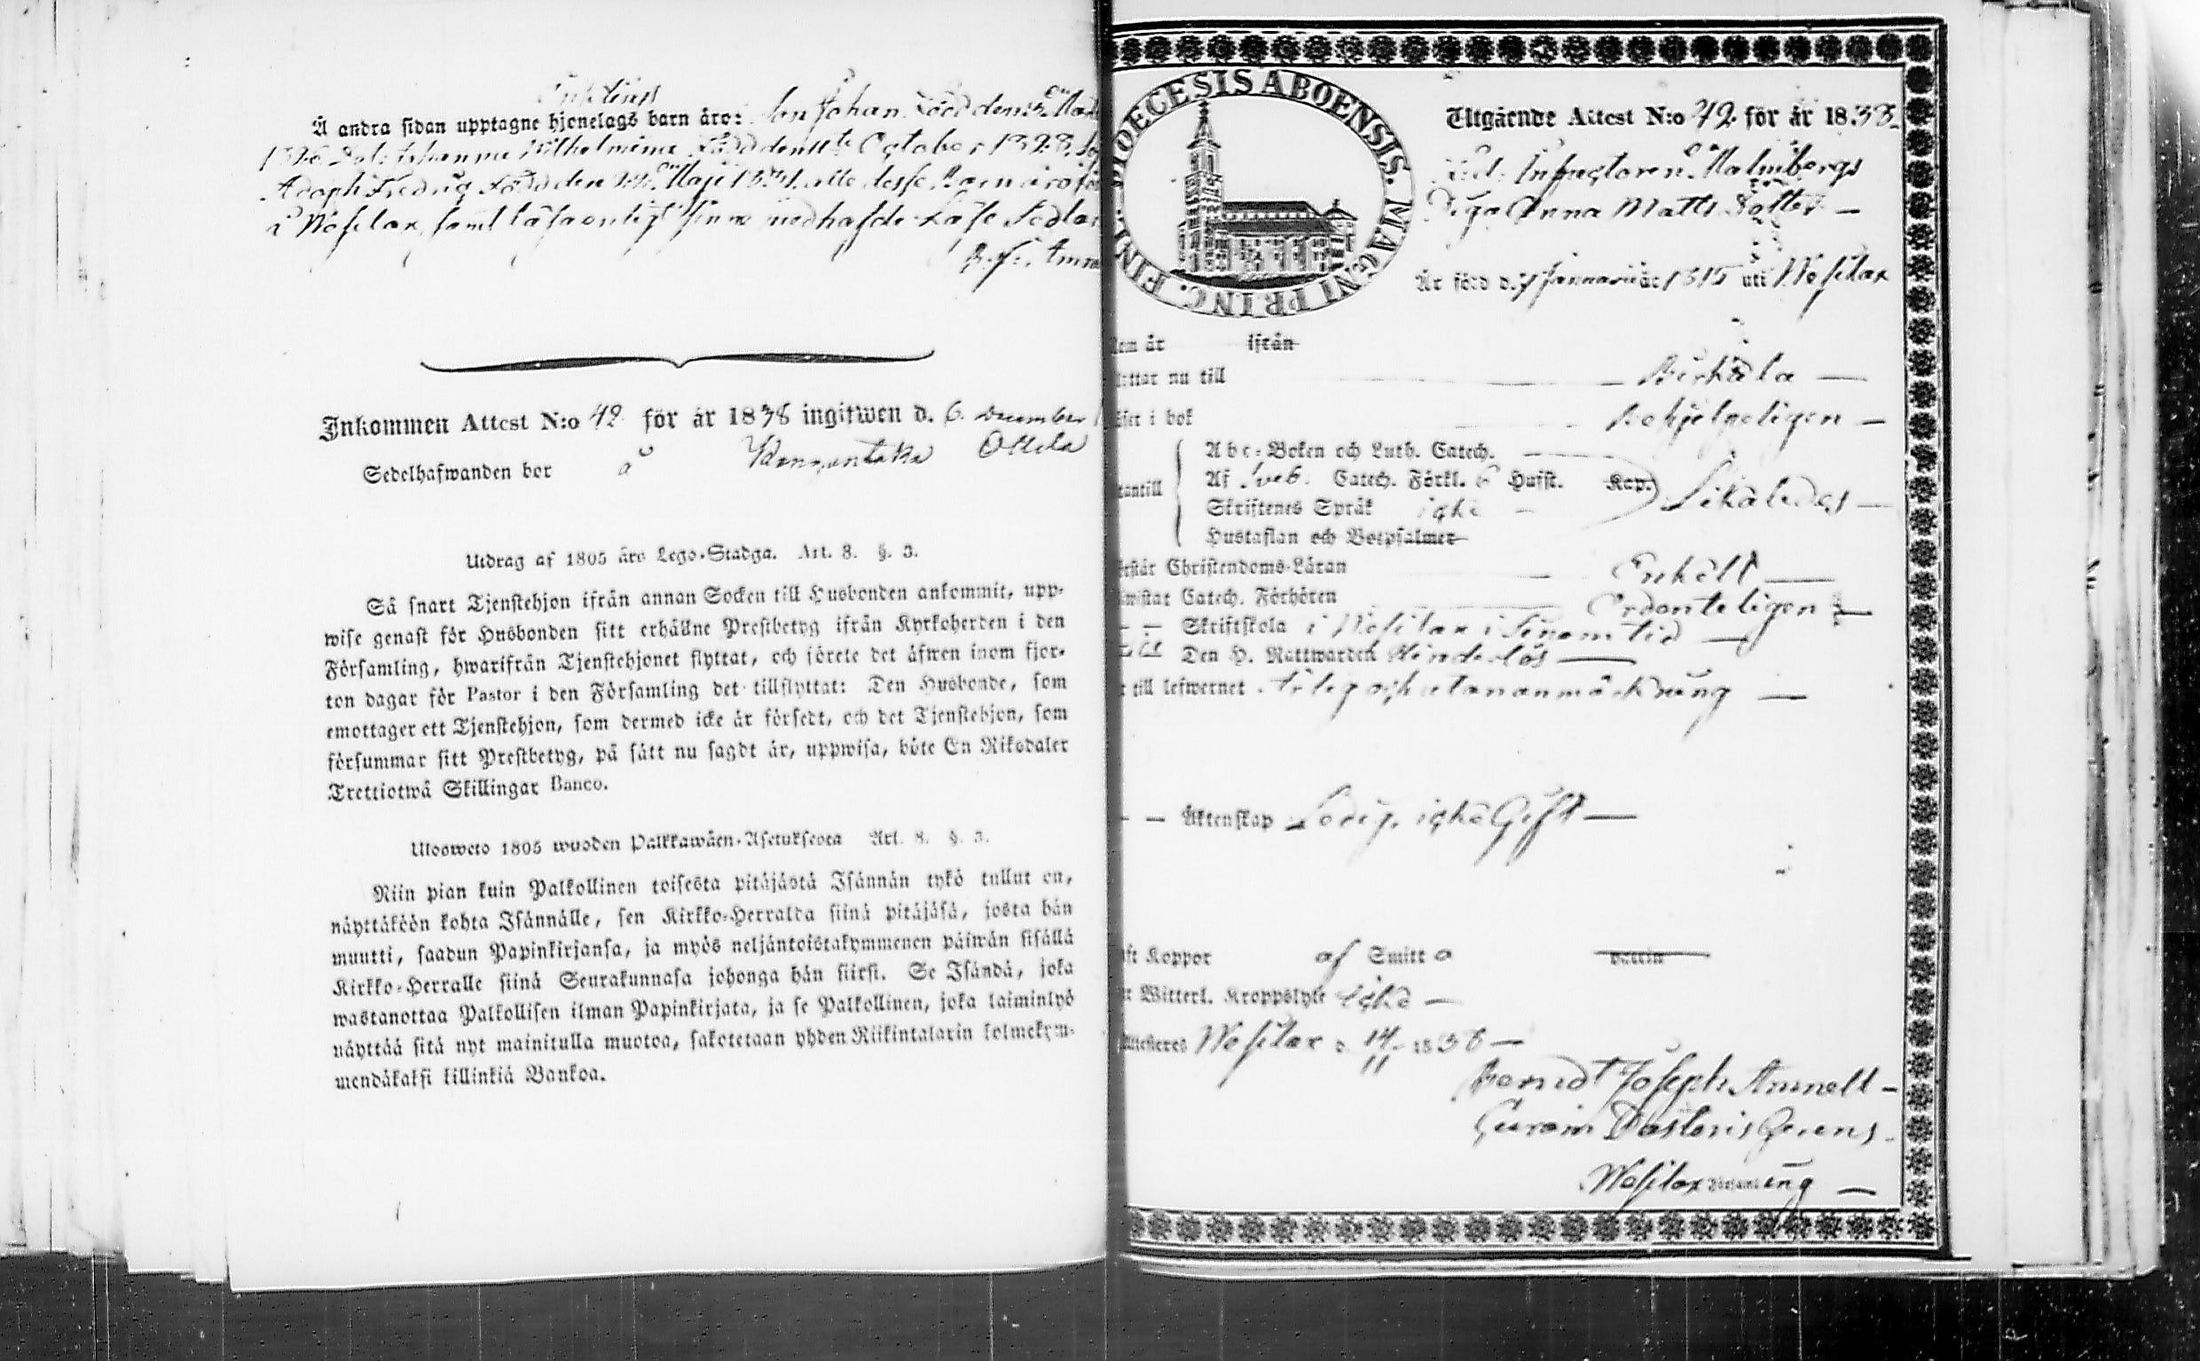 Å andra sidan upptagne hjonelags barn äro: Son Johan Född den
Wilhelmina Född den 11te October 1828.
Adoph Fredrig Född den Maji alle desse Barn äro
i Wosilax, samt läsa enligt nedhafde Läse Sedlar
B. J. Amne
Inkommen Attest N:o 42 för år 1838 ingifwen d. 6 December
Sedelhafwanden bor å Ottila
Utdrag af 1805 års Lego-Stadga. Art. 8. §. 3.
Så snart Tjenstehjon ifrån annan Socken till Husbonden ankommit, upp-
wise genast för Husbonden sitt erhållne Prestbetyg ifrån Kyrkoherden i den
Församling, hwarifrån Tjenstehjonet flyttat, och förete det äfwen inom fjor-
ton dagar för Pastor i den Församling det tillflyttat: Den Husbonde, som
emottager ett Tjenstehjon, som dermed icke är försedt, och det Tjenstehjon, som
försummar sitt Prestbetyg, på sätt nu sagdt är, uppwisa, böte En Riksdaler
Trettiotwå Skillingar Banco.
Ulosweto 1805 wuoden Palkkawäen-Asetuksesta Art. 8. §. 3.
Niin pian kuin Palkollinen toisesta pitäjästä Isännän tykö tullut on,
näyttäköön kohta Isännälle, sen Kirkko-Herralda siinä pitäjäsä, josta hän
muutti, saadun Papinkirjansa, ja myös neljäntoistakymmenen päiwän sisällä
Kirkko-Herralle siinä Seurakunnasa johonga hän siirsi. Se Isändä, joka
wastanottaa Palkollisen ilman Papinkirjata, ja se Palkollinen, joka laiminlyö
näyttää sitä nyt mainitulla muotoa, sakotetaan yhden Riikintalarin kolmekym-
mendäkaksi killinkiä Bankoa.
DIOECESIS ABOENSIS. MAGNI PRINC. FINL.
Utgående Attest N:o 42 för år 1838
Malmbergs
Piga Anna Matts Dotter —
Är född d. 7 Januarii år 1815 uti Wosilax
om år ifrån
ttar nu till — Birkala —
äser i bok Behjelpeligen —
Abc-Boken och Luth. Catech. —
antill Af Sveb. Catech. Förkl. 6 Hufst. Kap. Likaledes —
Skriftenes Språk icke —
Hustaflan och Botpsalmer
rstår Christendoms-Läran — Enkelt —
wistat Catech. Förhören — Ordenteligen —
— Skriftskola i Wosilax i sinom tid —
Den H. Nattwarden Hinderlös —
r till lefwernet Ärlig och utan anmärkning —
— — Äktenskap Ledig. icke Gift —
ft Koppor af Smitto
r Witterl. Kroppslyte icke —
Attesteres Wosilax d. 14/11 1838 —
Berndt Joseph Amnell —
Pastoris Gerens.
Wosilax Församling —